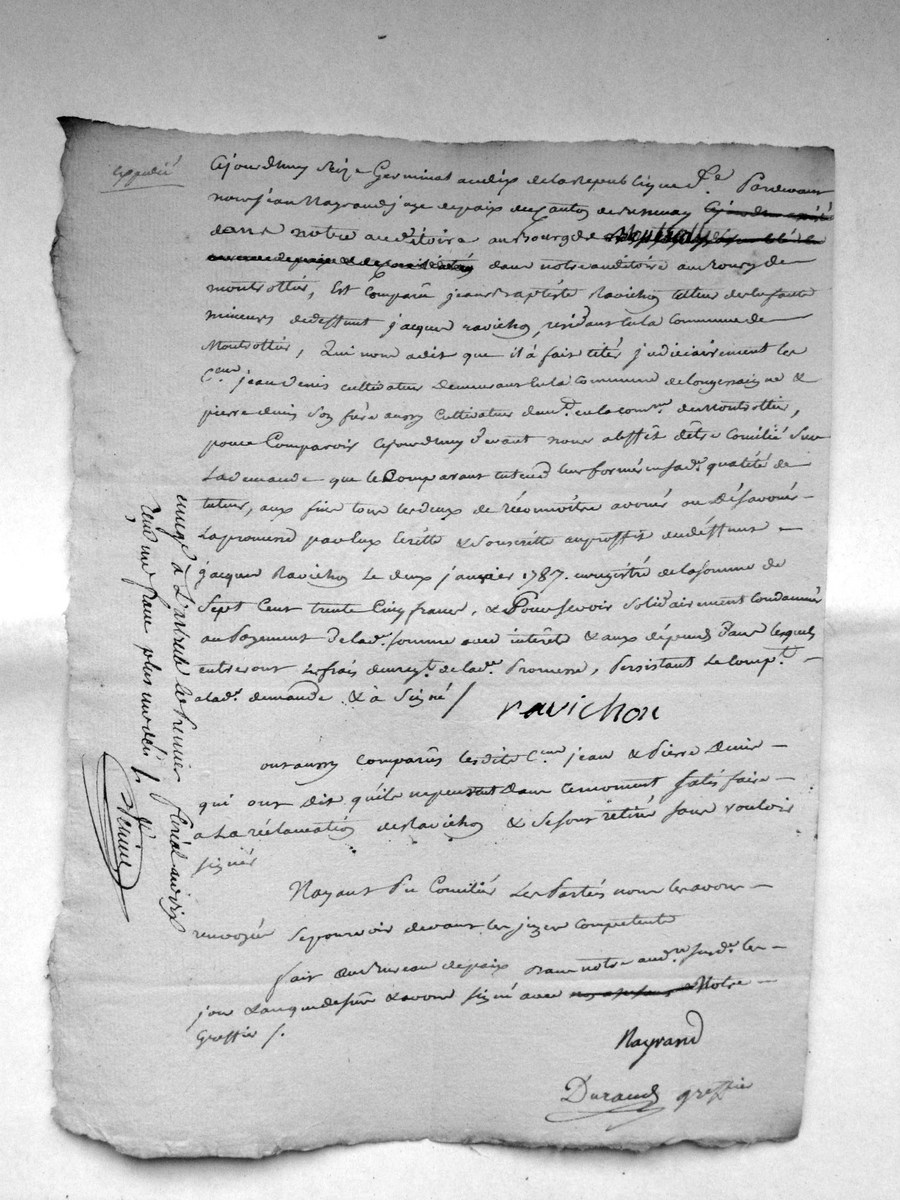 expédié
Ajourdhuy seize Germinal an dix de la Republique fse. Pardevant
nous jean Nayrand juge de paix du Canton de
dans notre auditoire au bourg de
dans notre auditoire au bourg de
montrottier, Est Comparû jean Baptiste Ravichon tuteur des enfants
mineurs de deffunt jacques ravichon, residant en la Commune de
Montrottier, Qui nous a dit que il à fait citér judiciairement les
Cens jean denis cultivateur demeurant en la Commune de longessaigne &
pierre denis son frère aussy Cultivateur demt. en la comne. de Montrottier,
pour Comparoir ajourdhuy devant nous à l'effèt d'être Conciliés sur
La demande que le Comparant entend leur former en sad. qualité de
tuteur, aux fins tous les deux de réconnoître avouér ou Désavouér
La promesse par Eux Ecritte & souscritte au proffit du deffunt
jacques Ravichon le deux janvier 1787. enregistré de la somme de
Sept Cent trente Cinq francs, & Pour se voir solidairement Condamnér
au Payement de lad. somme avec intérêt & aux dépens dans lesquels
entreront les frais d'enregt. de lad. Promesse, Persistant le Compt.
a lad. demande & à signé /
ravichon
ont aussy Comparûs lesdits Cens jean & Pierre denis
qui ont dit qu'ils ne peuvent dans ce moment satisfaire
a La réclamation de Ravichon & se sont retirés sans vouloir
signér
N'ayant Pu Conciliér Les Parties nous les avons
renvoyées se pourvoir devant les juges Compétents
fait au Bureau de paix dans notre audre. susd. les
jour & an que dessus & avons signé avec Notre
Greffier /.
Nayrand
Durand greffier
enrgé à L'arbresle le premier floréal an dix
reçu un franc plus un déci /.